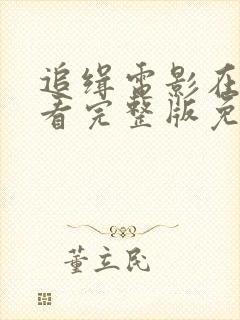 追缉电影在
看完整版免
董立民